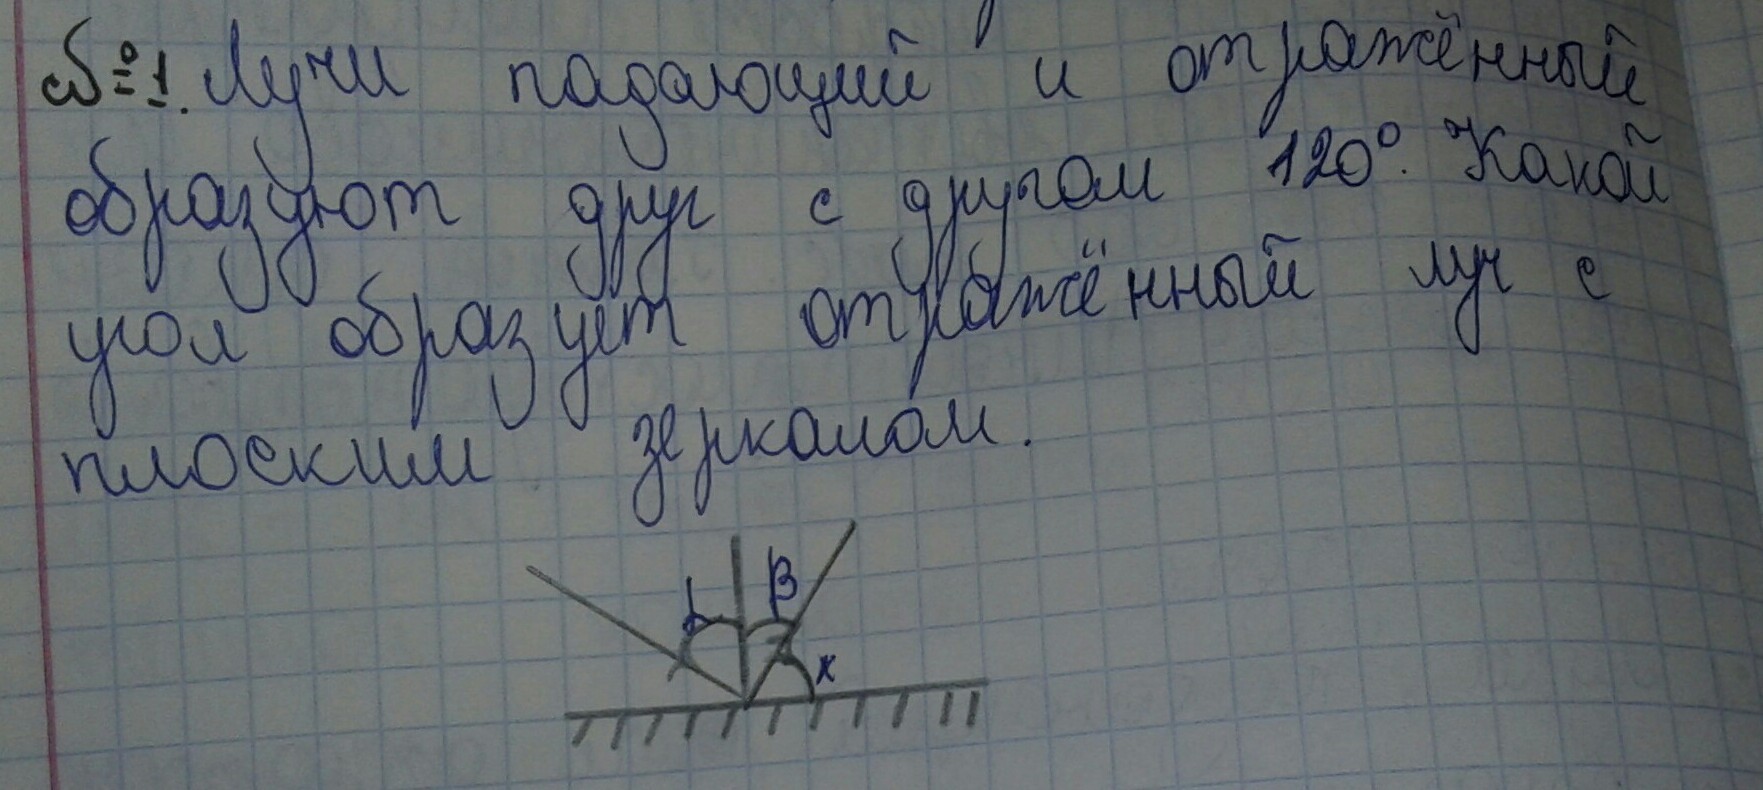 №1. Лучи падающий и отражённый
образуют друг с другом 120°. Какой
угол образует отражённый луч с
плоским зеркалом.
α β
x